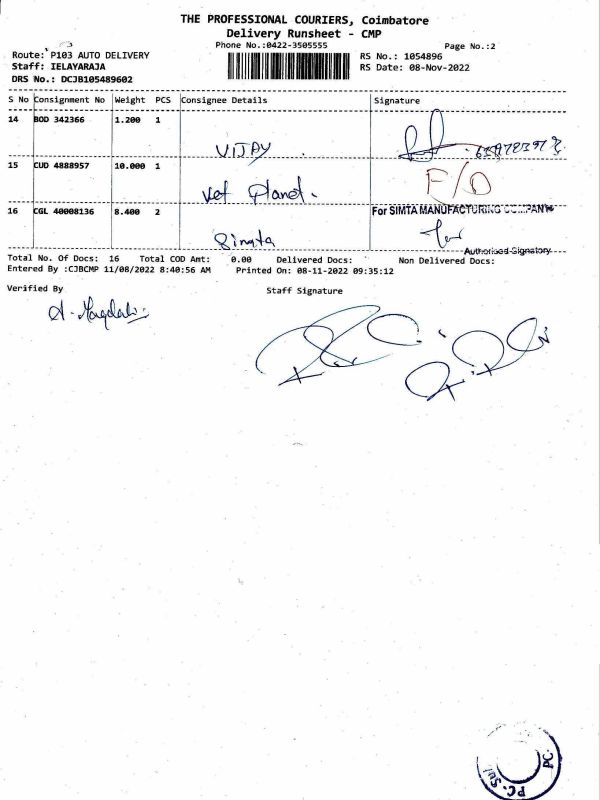 THE PROFESSIONAL COURIERS, Coimbatore
Delivery Runsheet - CMP
Phone No.:0422-3505555 Page No.:2
Route: P103 AUTO DELIVERY RS No.: 1054896
Staff: IELAYARAJA RS Date: 08-Nov-2022
DRS No.: DCJB105489602
S No Consignment No Weight PCS Consignee Details Signature
14 BOD 342366 1.200 1
VIJAY
15 CUD 4888957 10.000 1
Vet Planet. F/D
16 CGL 40008136 8.400 2 For SIMTA MANUFACTURING COMPANY
Simta
Authorised Signatory
Total No. Of Docs: 16 Total COD Amt: 0.00 Delivered Docs: Non Delivered Docs:
Entered By :CJBCMP 11/08/2022 8:40:56 AM Printed On: 08-11-2022 09:35:12
Verified By Staff Signature
PC.
PC.